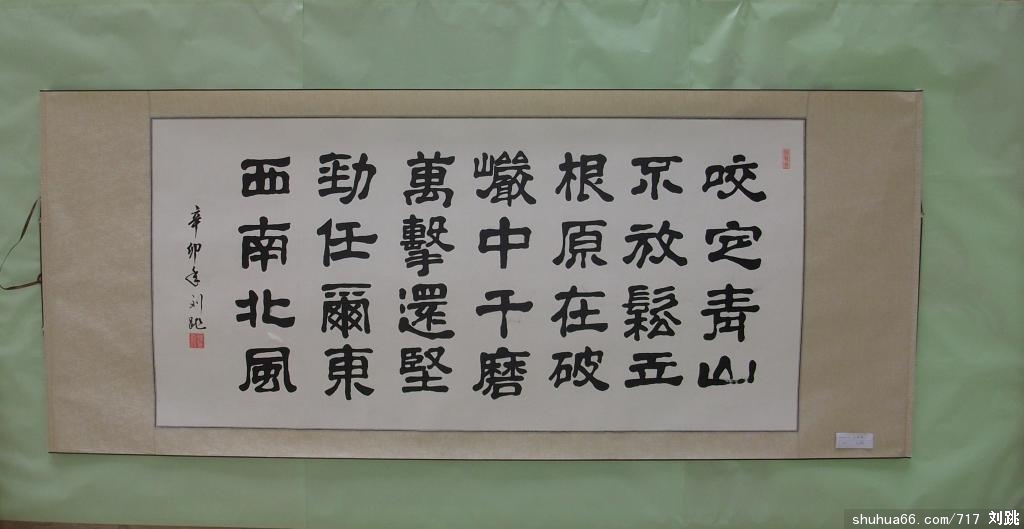 咬定青山
不放鬆立
根原在破
巖中千磨
萬擊還堅
勁任爾東
西南北風
辛卯年刘跳
shuhua66.com/717 刘跳